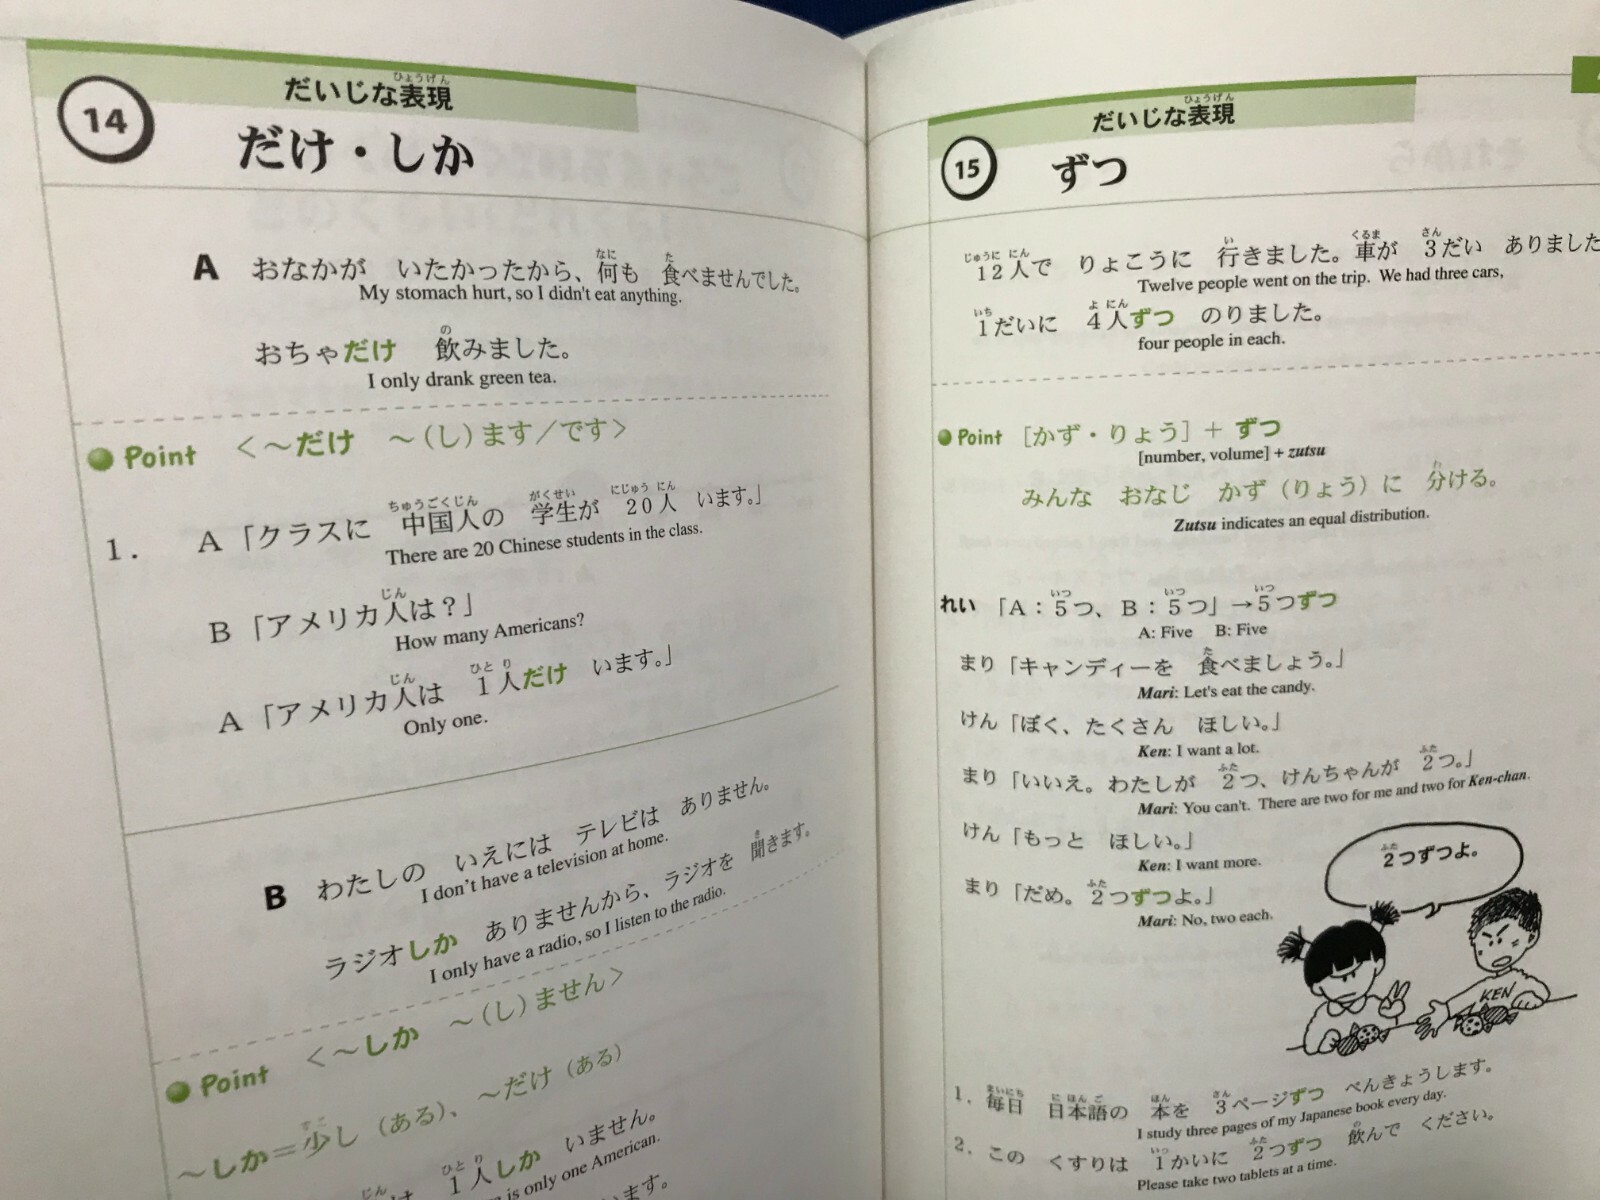 だいじな表現
14
だけ・しか
A おなかが いたかったから、何も 食べませんでした。
My stomach hurt, so I didn't eat anything.
おちゃだけ 飲みました。
I only drank green tea.
Point <～だけ ～(し)ます／です>
1. A「クラスに 中国人の 学生が 20人 います。」
There are 20 Chinese students in the class.
B「アメリカ人は？」
How many Americans?
A「アメリカ人は 1人だけ います。」
Only one.
B わたしの いえには テレビは ありません。
I don't have a television at home.
ラジオしか ありませんから、ラジオを 聞きます。
I only have a radio, so I listen to the radio.
Point <～しか ～(し)ません>
～しか＝少し（ある）、～だけ（ある）
は 1人しか いません。
is only one American.
います。
だいじな表現
15
ずつ
12人で りょこうに 行きました。車が 3だい ありました
Twelve people went on the trip. We had three cars,
1だいに 4人ずつ のりました。
four people in each.
Point [かず・りょう]＋ずつ
[number, volume] + zutsu
みんな おなじ かず（りょう）に 分ける。
Zutsu indicates an equal distribution.
れい 「A：5つ、B：5つ」→5つずつ
A: Five B: Five
まり「キャンディーを 食べましょう。」
Mari: Let's eat the candy.
けん「ぼく、たくさん ほしい。」
Ken: I want a lot.
まり「いいえ。わたしが 2つ、けんちゃんが 2つ。」
Mari: You can't. There are two for me and two for Ken-chan.
けん「もっと ほしい。」
Ken: I want more.
まり「だめ。2つずつよ。」
Mari: No, two each.
2つずつよ。
KEN
1. 毎日 日本語の 本を 3ページずつ べんきょうします。
I study three pages of my Japanese book every day.
2. この くすりは 1かいに 2つずつ 飲んで ください。
Please take two tablets at a time.